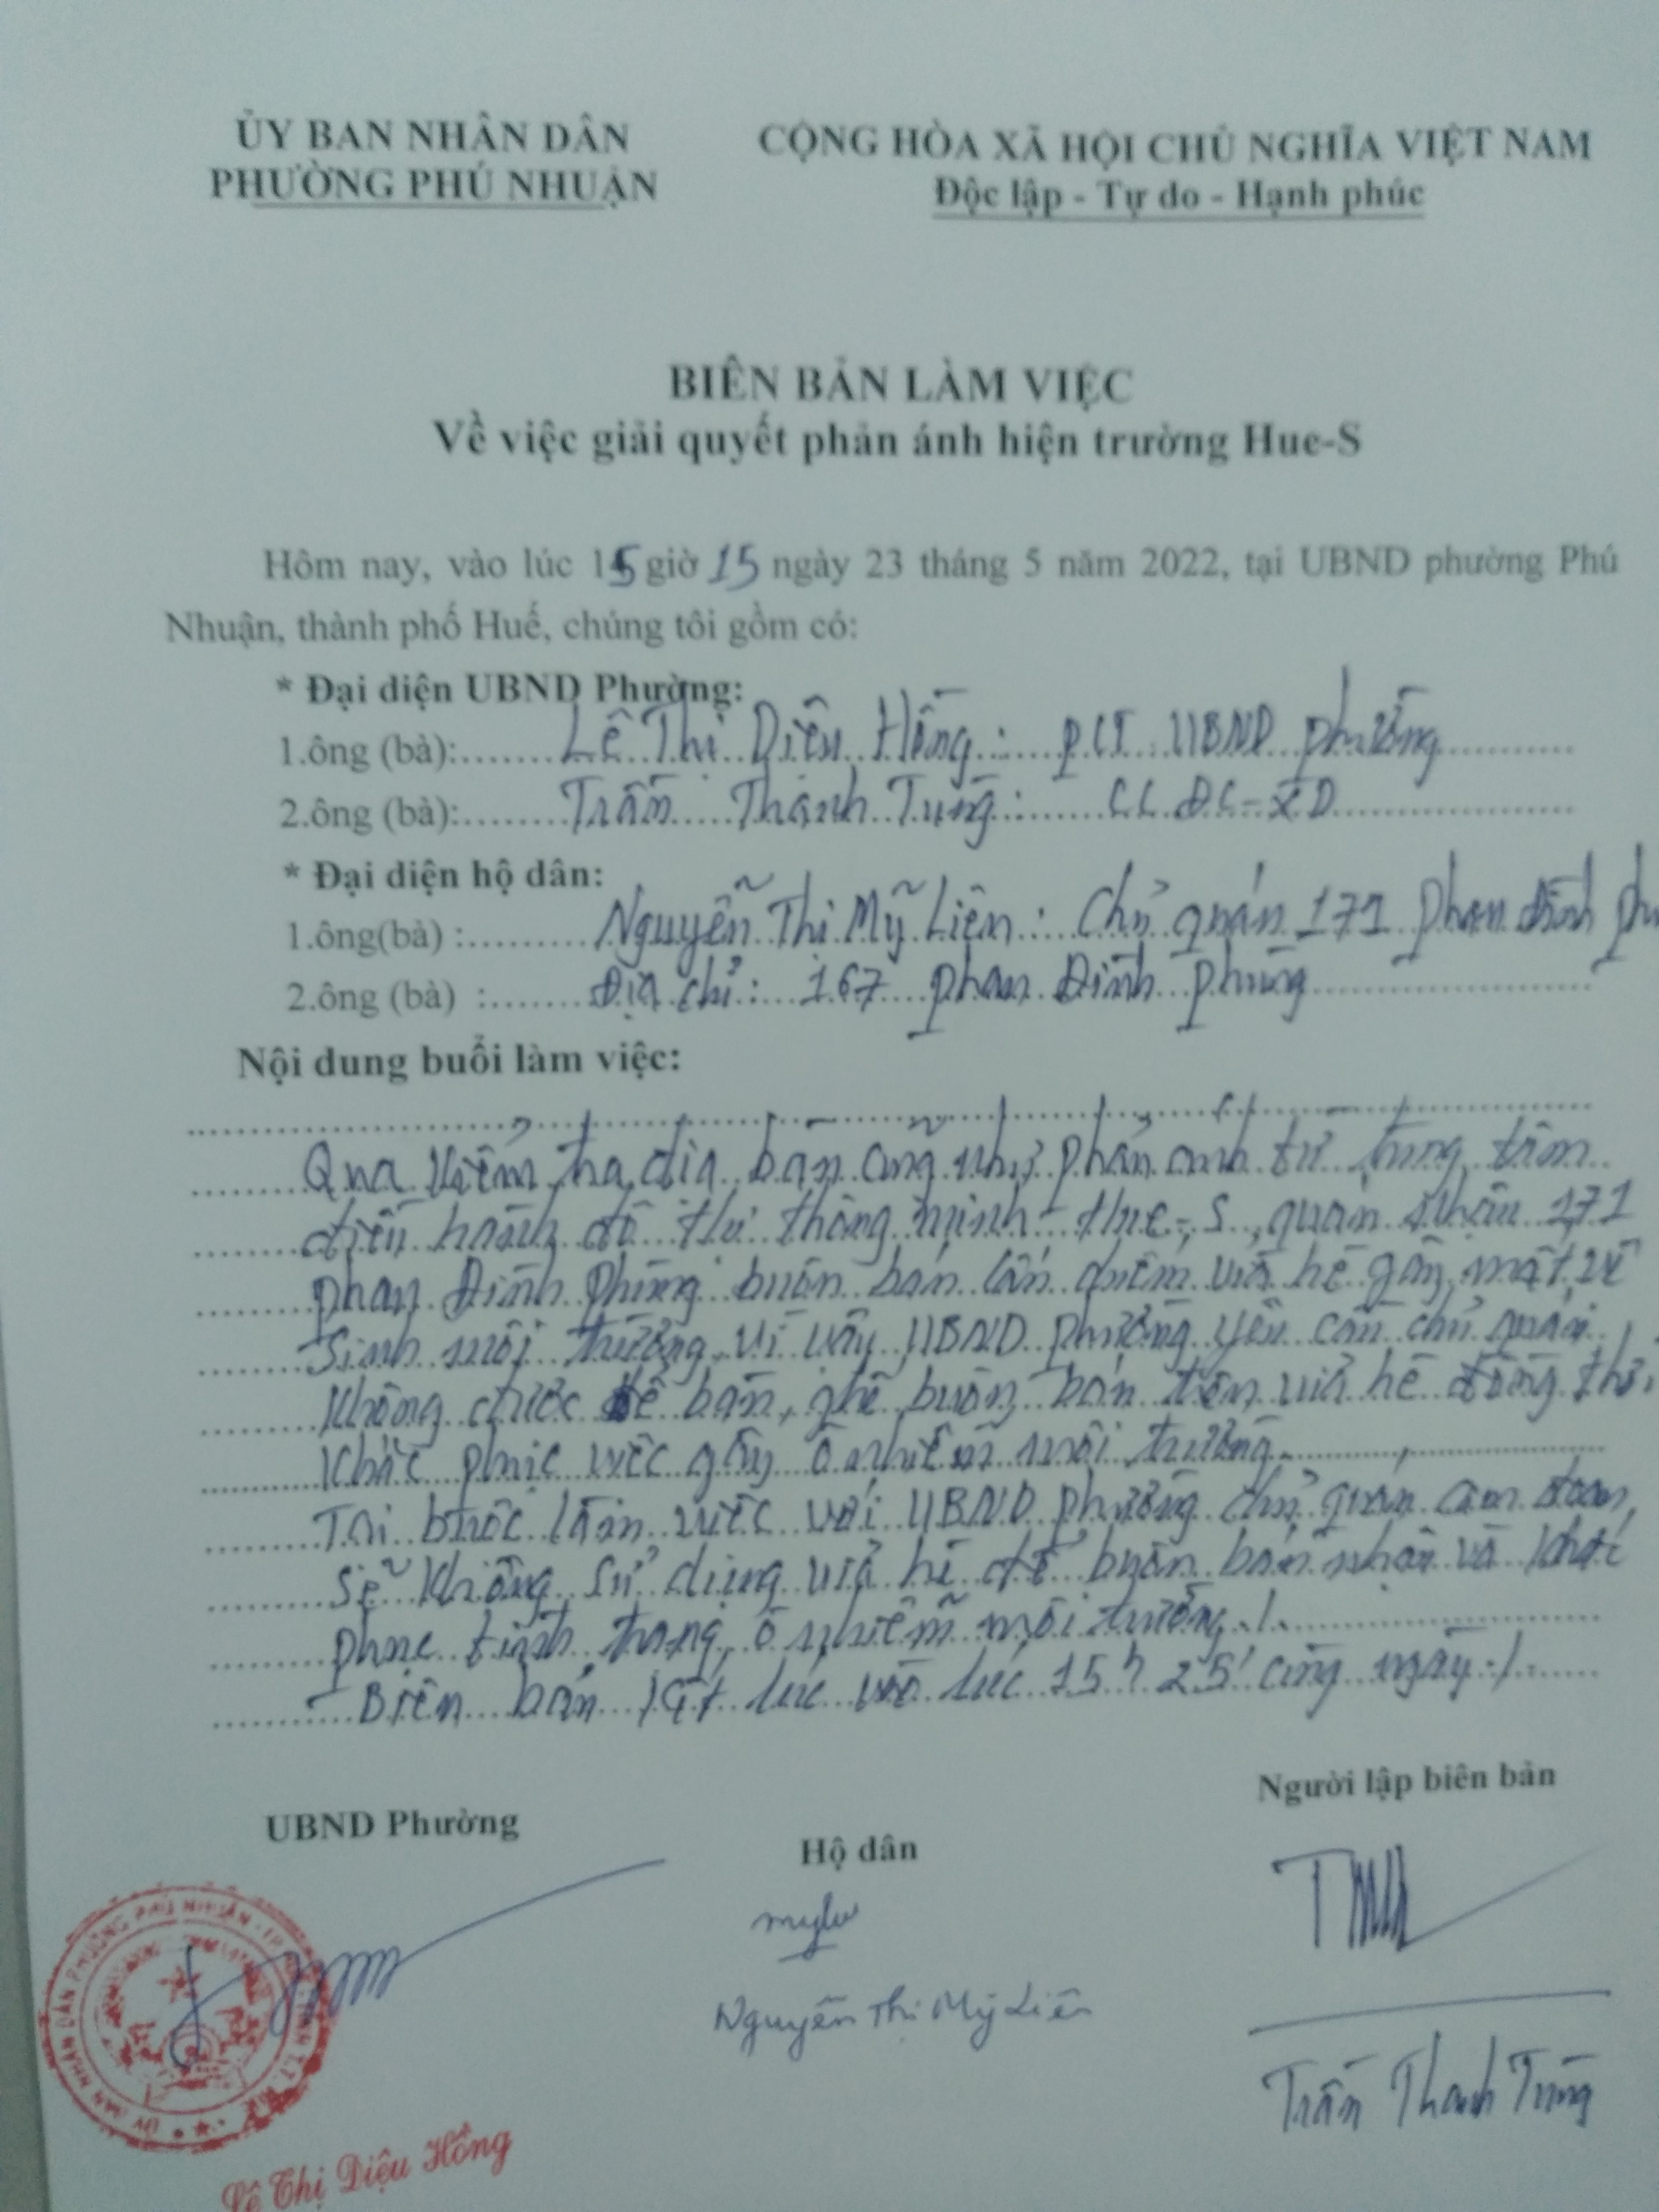 ỦY BAN NHÂN DÂN
PHƯỜNG PHÚ NHUẬN
CỘNG HÒA XÃ HỘI CHỦ NGHĨA VIỆT NAM
Độc lập - Tự do - Hạnh phúc
BIÊN BẢN LÀM VIỆC
Về việc giải quyết phản ánh hiện trường Hue-S
Hôm nay, vào lúc 15 giờ 15 ngày 23 tháng 5 năm 2022, tại UBND phường Phú
Nhuận, thành phố Huế, chúng tôi gồm có:
* Đại diện UBND Phường:
1.ông (bà):........Lê Thị Diệu Hồng: PCT UBND phường
2.ông (bà):........Trần Thanh Tùng: CC ĐC-XD
* Đại diện hộ dân:
1.ông(bà) :.........Nguyễn Thị Mỹ Liên: Chủ quán 171 Phan Đình
2.ông (bà) :.......Địa chỉ: 167 Phan Đình Phùng
Nội dung buổi làm việc:
Qua kiểm tra địa bàn cũng như phản ánh từ trung tâm
điều hành đô thị thông minh Hue-S, quán nhậu 171
Phan Đình Phùng buôn bán lấn chiếm vỉa hè gây mất vệ
sinh môi trường, vì vậy UBND phường yêu cầu chủ quán
không được để bàn, ghế buôn bán trên vỉa hè đồng thời
khắc phục việc gây ô nhiễm môi trường.
Tại buổi làm việc với UBND phường chủ quán cam đoan
sẽ không sử dụng vỉa hè để buôn bán nhậu và khắc
phục tình trạng ô nhiễm môi trường./.
Biên bản kết thúc vào lúc 15h25' cùng ngày./.
UBND Phường
Hộ dân
Người lập biên bản
Nguyễn Thị Mỹ Liên
Trần Thanh Tùng
ỦY BAN NHÂN DÂN PHƯỜNG PHÚ NHUẬN
Lê Thị Diệu Hồng